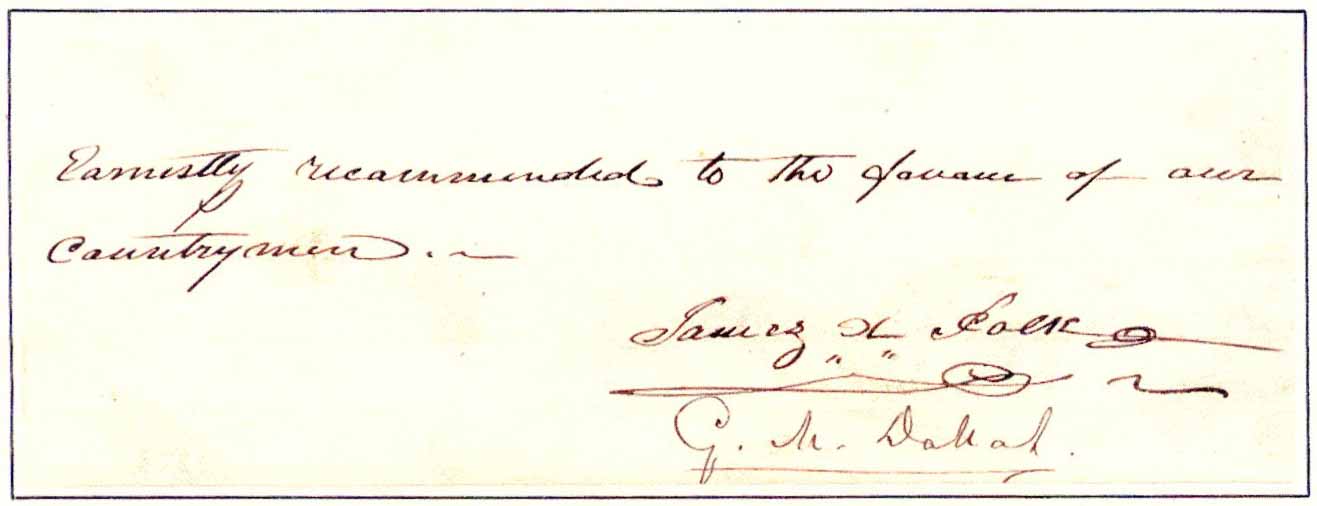 Earnestly recommended to the favour of our
Countrymen. ~
James K Polk
G. M. Dallas.